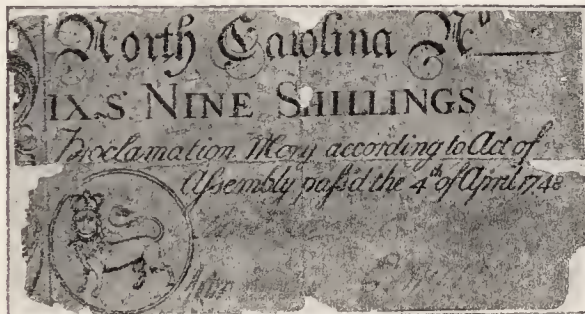 North Carolina No
IX.S NINE SHILLINGS
Proclamation Mony according to Act of
Assembly pass'd the 4th of April 1748